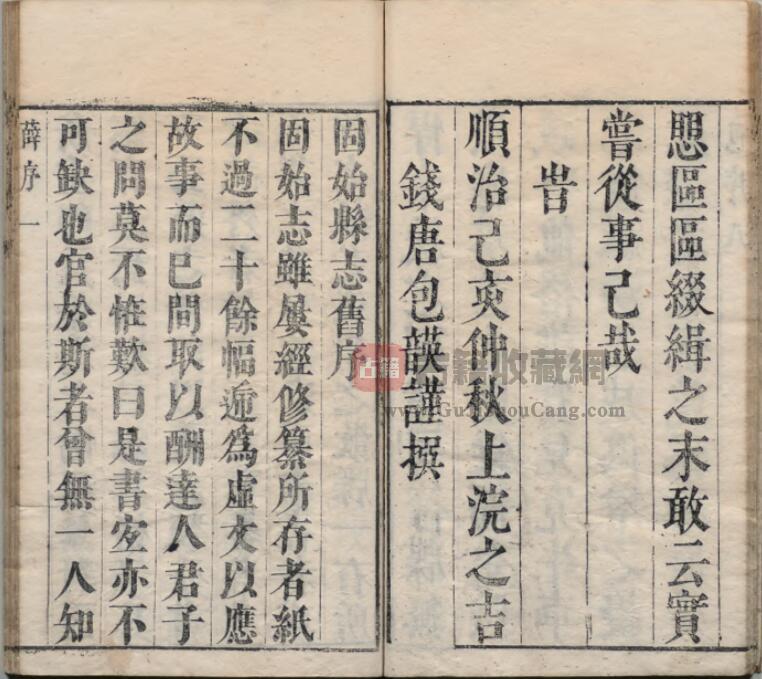 愳區區綴緝之末敢云實
嘗從事己哉
旹
順治己亥仲秋上浣之吉
錢唐包韺謹撰
固始縣志舊序
固始志雖屢經修纂所存者紙
不過二十餘幅遞為虛文以應
故事而已間取以酬達人君子
之問莫不惟歎曰是書㝎亦不
可缺也官於斯者曾無一人知
薛序 一
古籍 收藏網
www.GuJiShouCang.com